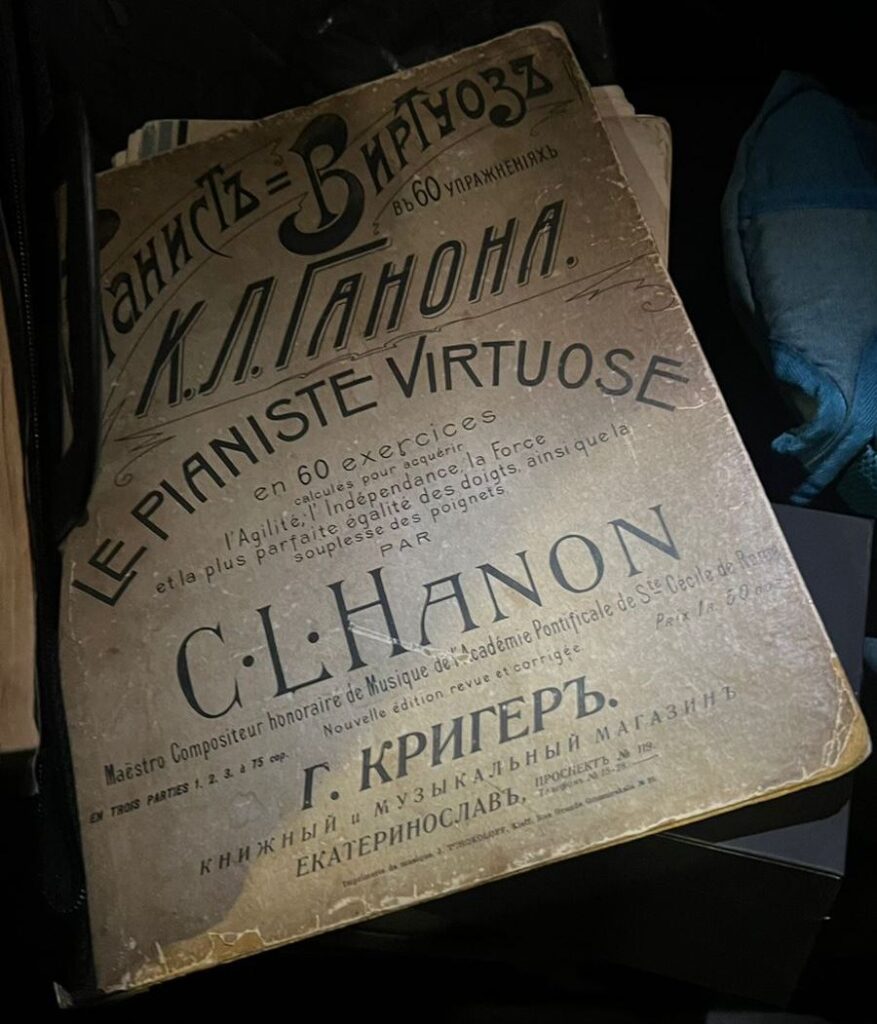 Піанистъ=Виртуозъ
въ 60 упражненіяхъ
К.Л.Ганона.
LE PIANISTE VIRTUOSE
en 60 exercices
calculés pour acquérir
l'Agilité, l'Indépendance, la Force
et la plus parfaite égalité des doigts, ainsi que la
souplesse des poignets
PAR
C.L.HANON
Maëstro Compositeur honoraire de Musique de l'Académie Pontificale de Ste Cécile de Rome
Nouvelle édition revue et corrigée
Prix 1 r. 50
EN TROIS PARTIES 1, 2, 3, à 75 cop.
Г. КРИГЕРЪ.
КНИЖНЫЙ и МУЗЫКАЛЬНЫЙ МАГАЗИНЪ
ЕКАТЕРИНОСЛАВЪ, ПРОСПЕКТЪ № 119.
Imprimerie de musique Kieff, Rue